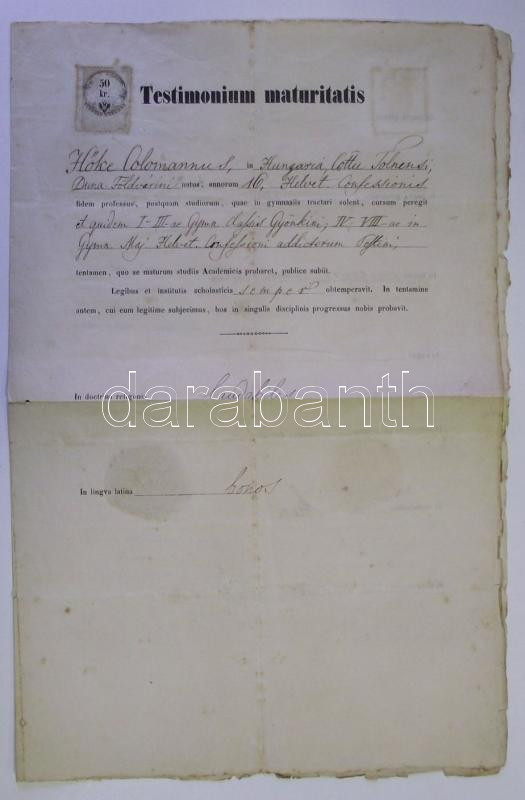 50
kr.
Testimonium maturitatis
Hőke Colomannus, in Hungaria, Cottu Tolnensi,
Duna Földvarini natus, annorum 16, Helvet. Confessionis
fidem professus, postquam studiorum, quae in gymnasiis tractari solent, cursum peregit
et quidem I-III-ae Gymn. Classis Gyönkini; IV-VIII-ae in
Gymn. Maj. Helvet. Confessioni addictorum Pestini,
tentamen, quo se maturum studiis Academicis probaret, publice subiit.
Legibus et institutis scholasticis semper obtemperavit. In tentamine
autem, cui eum legitime subjecimus, hos in singulis disciplinis progressus nobis probavit.
In doctrina religionis laudabiles
darabanth
In lingva latina bonos